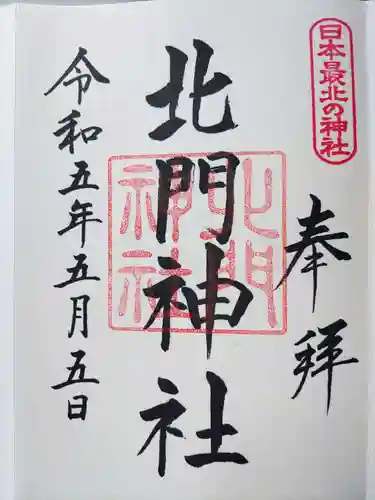 日本最北の神社
奉拝
北門神社
北門神社
令和五年五月五日